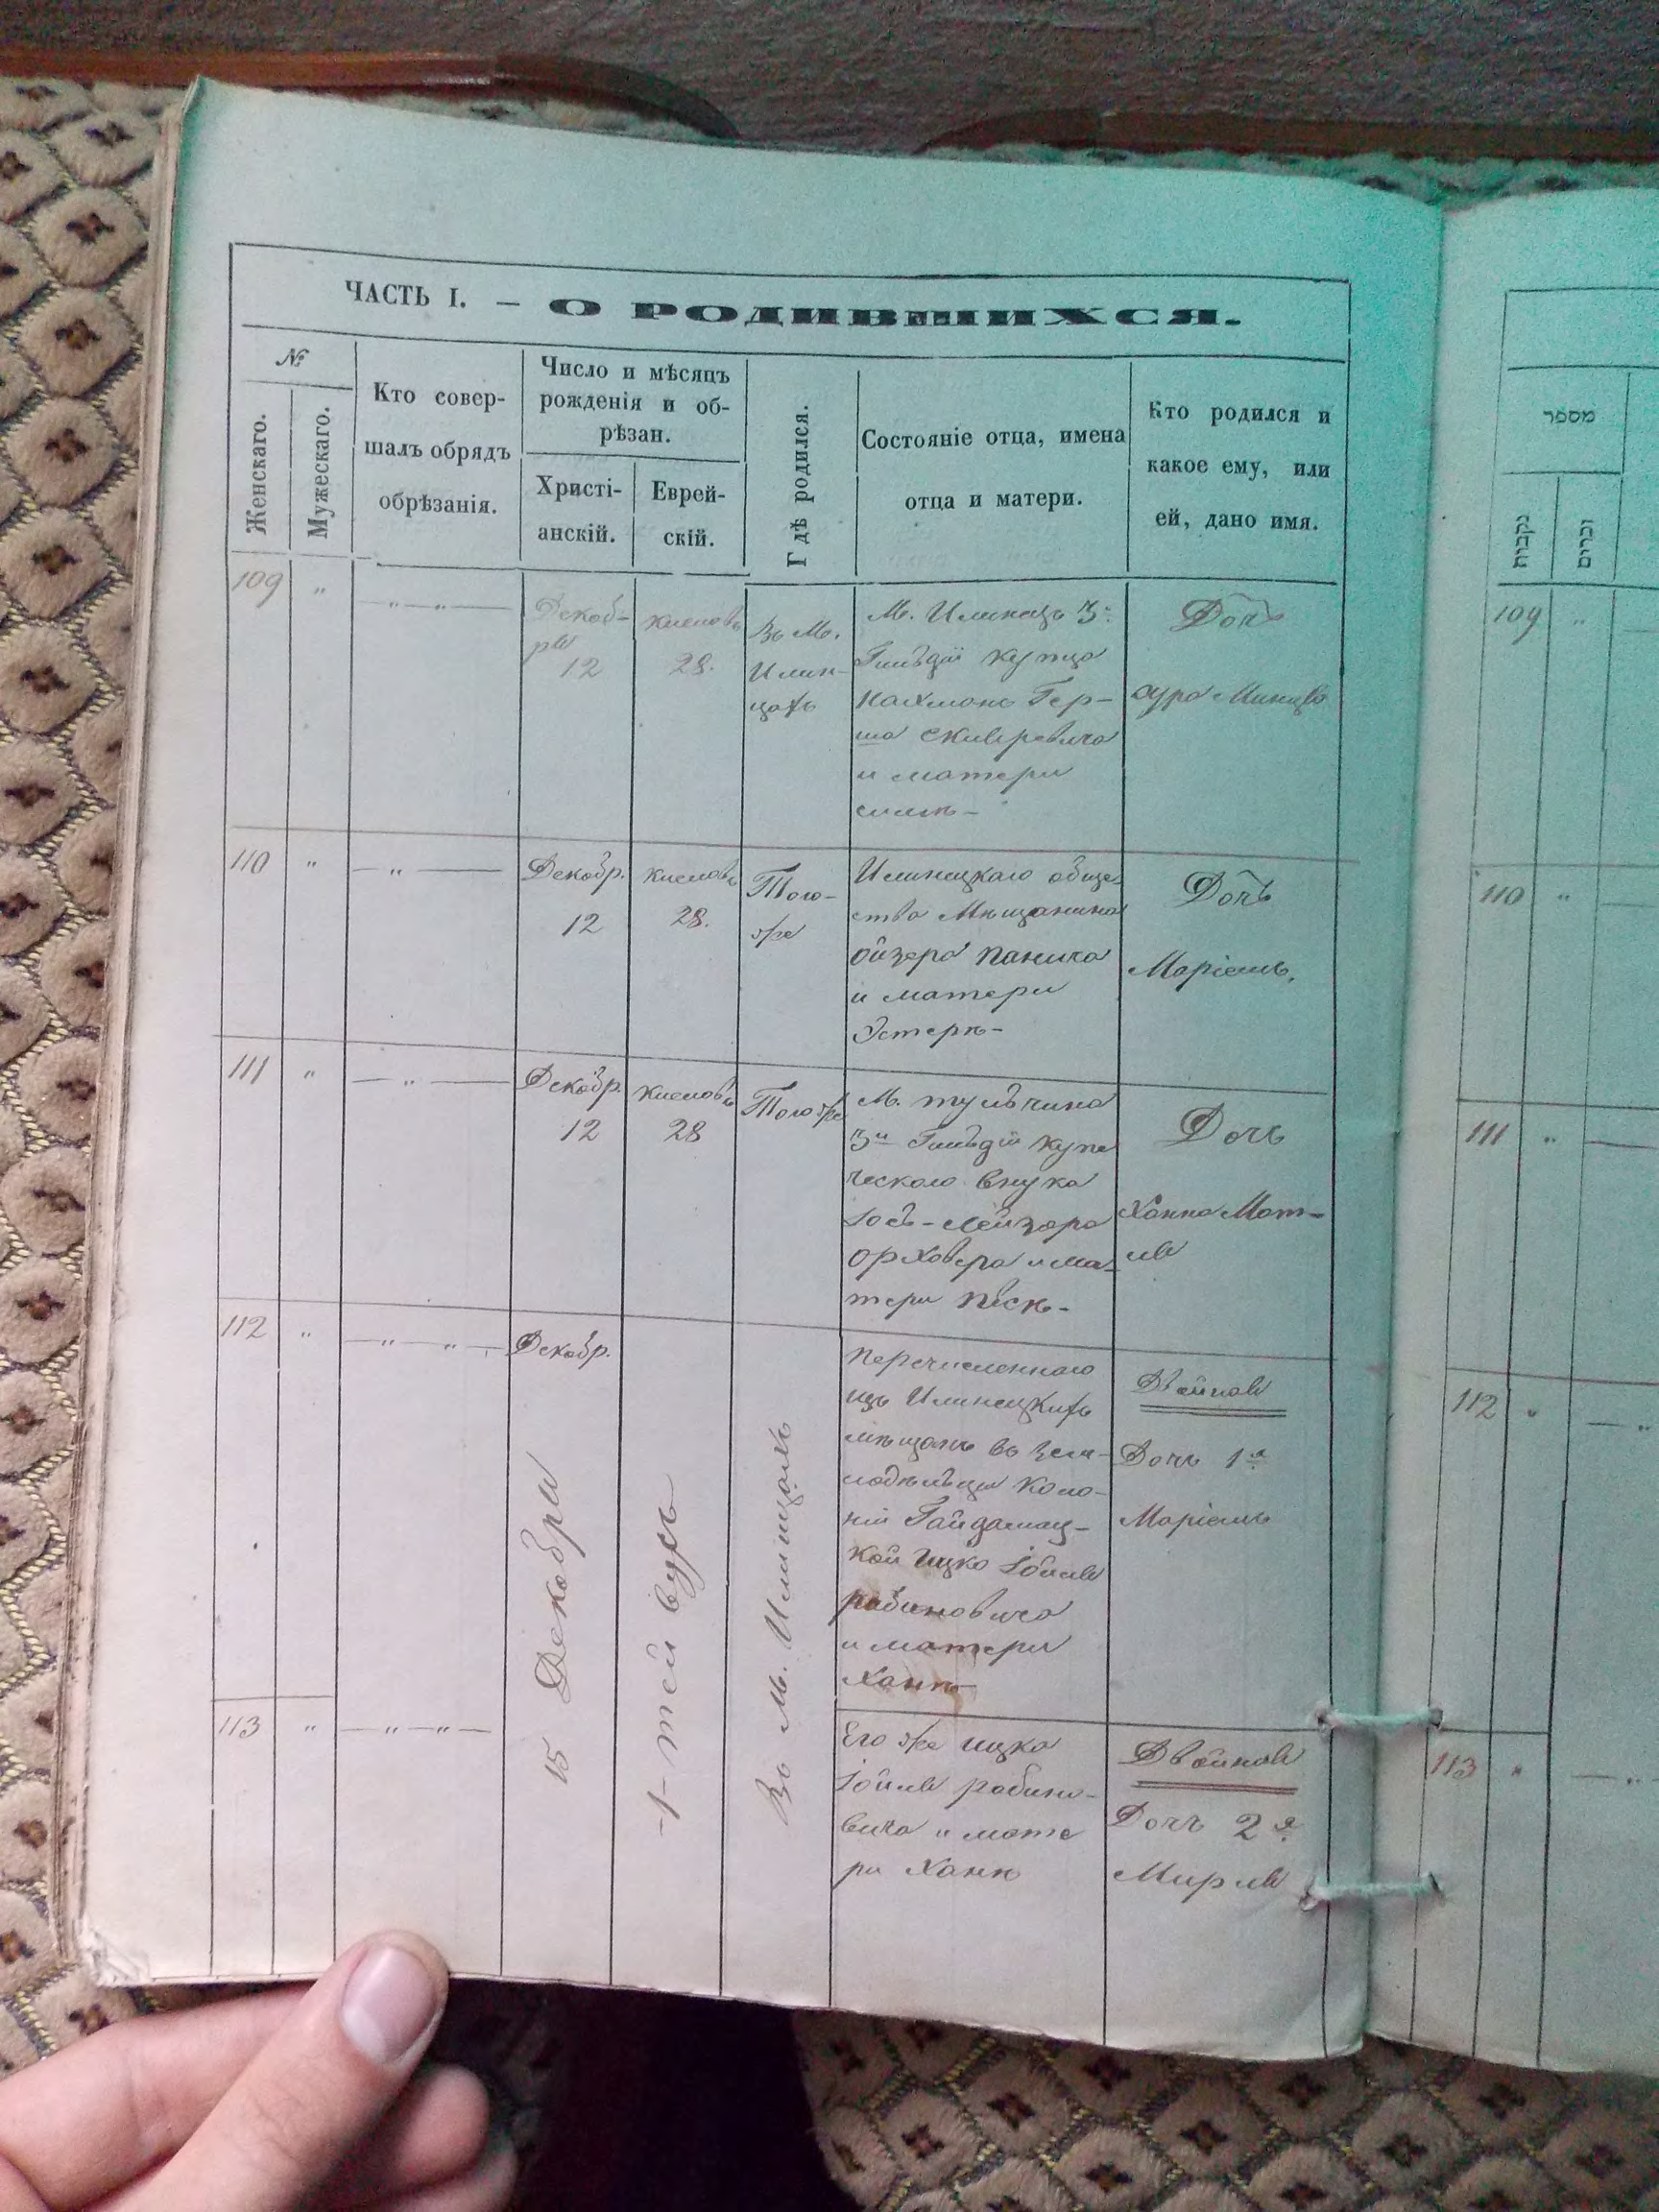 ЧАСТЬ I. — О РОДИВШИХСЯ.
№
Женскаго.
Мужескаго.
Кто совер-
шалъ обрядъ
обрѣзанія.
Число и мѣсяцъ
рожденія и об-
рѣзан.
Христі-
анскій.
Еврей-
скій.
Гдѣ родился.
Состояніе отца, имена
отца и матери.
Кто родился и
какое ему, или
ей, дано имя.
109
"
— " — " —
Декаб-
ря
12
кислевъ
28.
Въ М.
Илин-
цахъ
М. Илинецъ 3:
Гильдіи купца
Нахмана Гер-
ша
и матери
Дочь
сура
110
"
— " —
Декабр.
12
кислевъ
28.
Того-
же
Илинецкаго обще-
ства Мѣщанина
ойзера паника
и матери
Эстеръ-
Дочь
Маріемъ,
111
"
— " —
Декабр.
12
кислевъ
28
Того же
М. тульчина
3й Гильдіи купе
ческаго внука
Іось-лейзора
орховера и ма-
тери песъ-
Дочь
Ханна Мат-
ля
112
"
— " — " —
Декабр.
15 Декабря
1- тей
Въ М. Илинцахъ
перечисленнаго
изъ Илинецкихъ
мѣщанъ въ зем-
ледѣльцы коло-
ніи Гайдамац-
кой ицко Іойля
рабиновича
и матери
Ханнъ
Двойнов
Дочь 1я
Маріемъ
113
"
— " — " —
Его же ицка
Іойля рабино-
вича и мате
ри Ханъ
Двойнов
Дочь 2я
Мирля
מספר
נקבות
זכרים
109
"
110
"
111
"
112
"
113
"